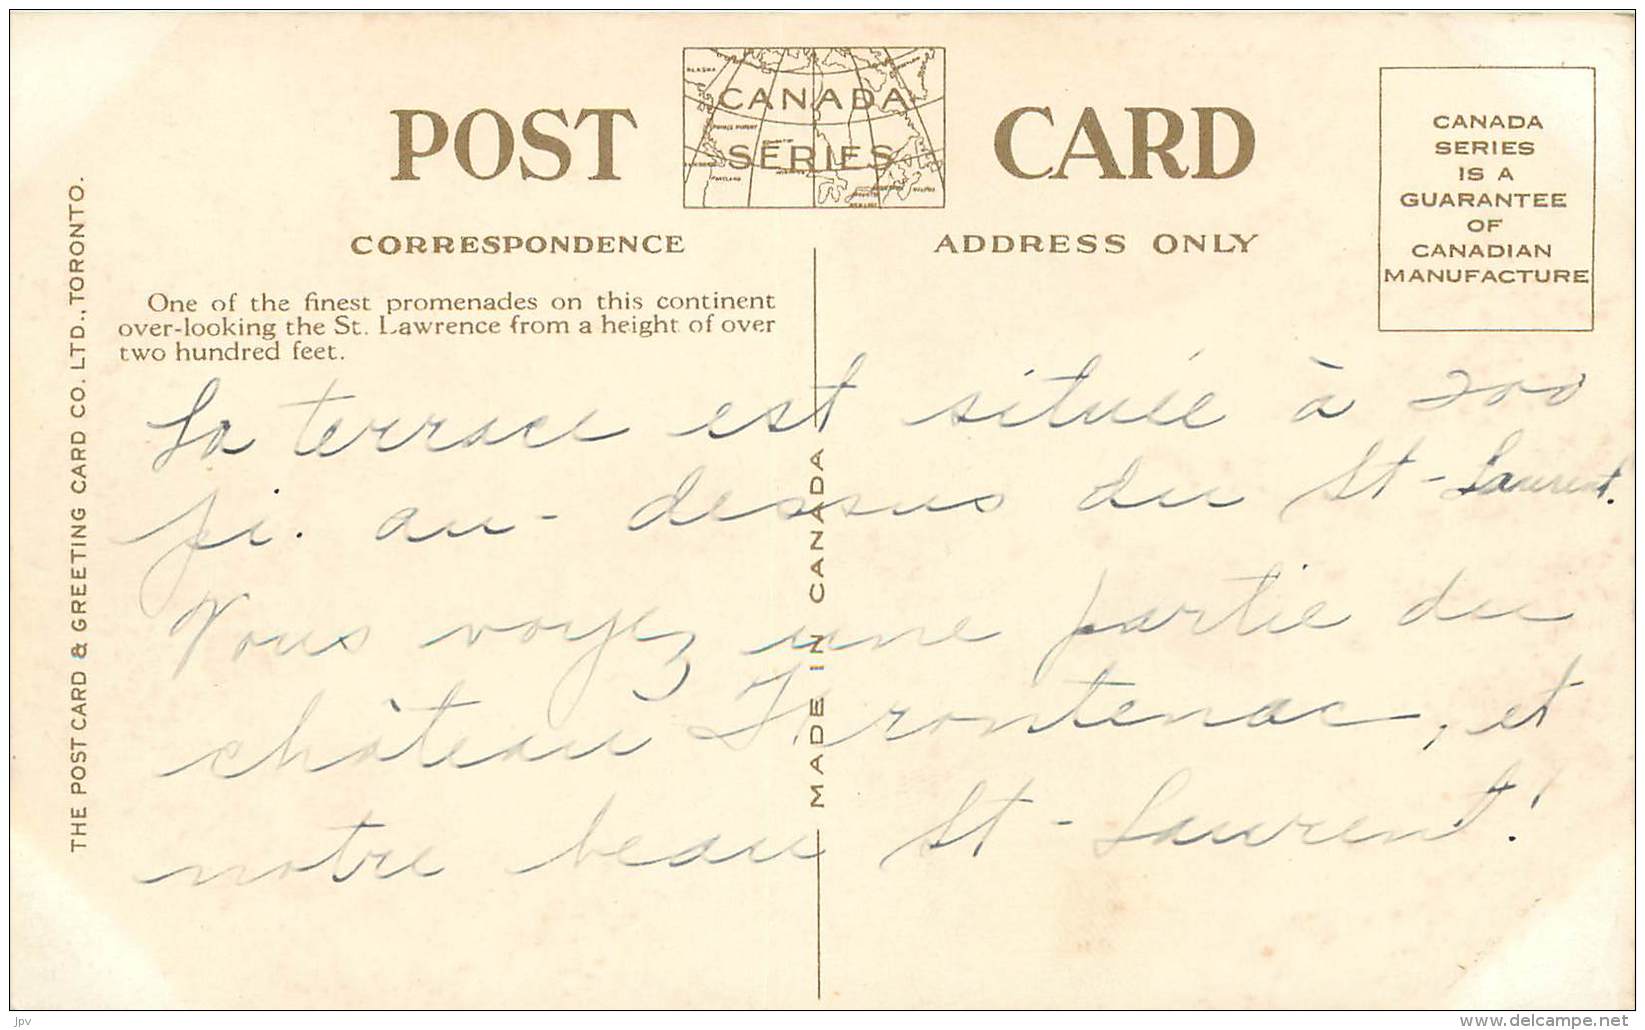 POST CARD
CANADA
SERIES
ALASKA
PORTLAND
CORRESPONDENCE
ADDRESS ONLY
CANADA
SERIES
IS A
GUARANTEE
OF
CANADIAN
MANUFACTURE
One of the finest promenades on this continent
over-looking the St. Lawrence from a height of over
two hundred feet.
La terrace est située à 200
pi. au-dessus du St-Laurent.
Vous voyez une partie du
château Frontenac, et
notre beau St-Laurent!
MADE IN CANADA
THE POST CARD & GREETING CARD CO. LTD., TORONTO.
jpv
delcampe.net